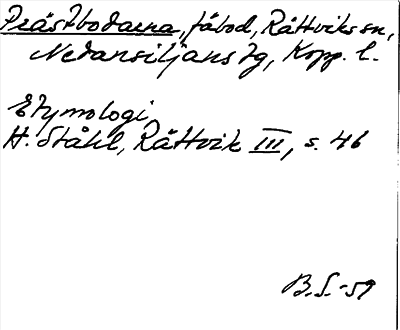 Prästbodarna, fäbod, Rättviks sn,
Nedansiljans tg, Kopp. l.
Etymologi
H. Ståhl, Rättvik III, s. 46
B.S.-59